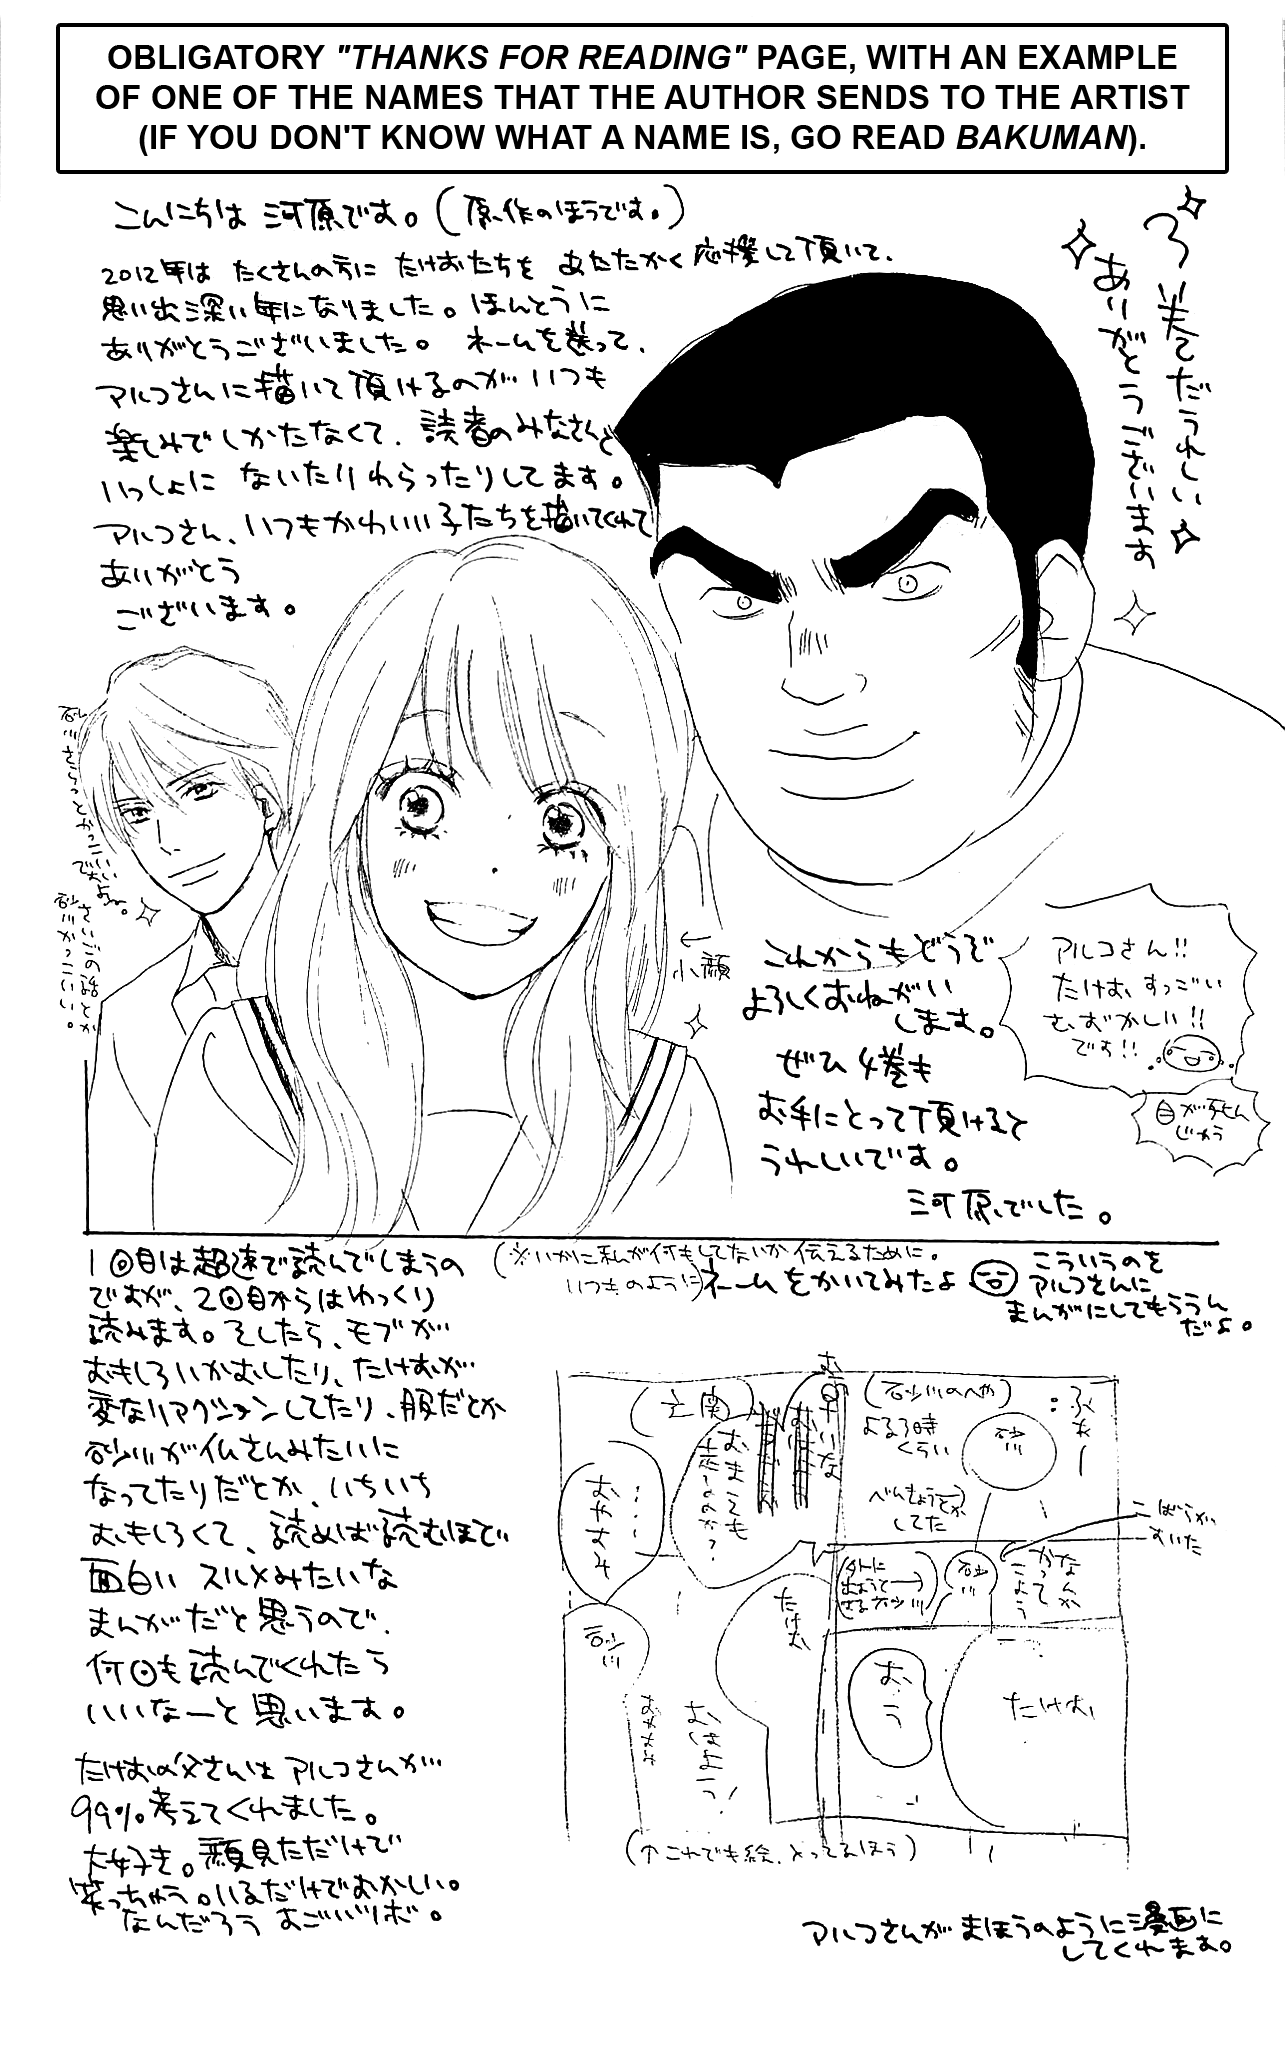 OBLIGATORY "THANKS FOR READING" PAGE, WITH AN EXAMPLE
OF ONE OF THE NAMES THAT THE AUTHOR SENDS TO THE ARTIST
(IF YOU DON'T KNOW WHAT A NAME IS, GO READ BAKUMAN).
こんにちは 河原です。(原作のほうです。)
2012年は たくさんの方に たけおたちを あたたかく応援して頂いて、
思い出深い年になりました。ほんとうに
ありがとうございました。 ネームを送って、
アルコさんに描いて頂けるのがいつも
楽しみでしかたなくて、読者のみなさんと
いっしょに ないたりわらったりしてます。
アルコさん、いつもかわいい子たちを描いてくれて
ありがとう
ございます。
3巻だうれしい
ありがとうございます
砂川さらっとかっこいい
ですよね。
さいごの話とか
砂川かっこいい。
←
小顔
これからもどうぞ
よろしくおねがい
します。
ぜひ4巻も
お手にとって頂けると
うれしいです。
河原でした。
アルコさん!!
たけお、すっごい
むずかしい!!
です!!
自分でせん
じゃう
1回目は超速で読んでしまうの
ですが、2回目からはゆっくり
読みます。そしたら、モブが
おもしろいかおしたり、たけおが
変なリアクションしてたり、服だとか
砂川が仏さんみたいに
なってたりだとか、いちいち
おもしろくて、読めば読むほど
面白い スルメみたいな
まんがだと思うので、
何回も読んでくれたら
いいなーと思います。
たけおの父さんは アルコさんが
99%考えてくれました。
大好き。顔見ただけで
笑っちゃう。いるだけでおかしい。
なんだろう すごいツボ。
(※いかに私が何もしてないか伝えるために。
いつものように)ネームをかいてみたよ
こういうのを
アルコさんに
まんがにしてもらうん
だよ。
(砂川のへや)
よる3時
くらい
べんきょうとか
してた
砂川
ふぁー
こばらが
すいた
なんか
かって
こよう
砂川
(外に
出ようと
する砂川)
たけお
おう
(玄関)
おまえも
走るのか?
たけお
おはよう!
……
おやすみ
砂川
(↑これでも絵、とってるほう)
アルコさんがまほうのように漫画に
してくれます。